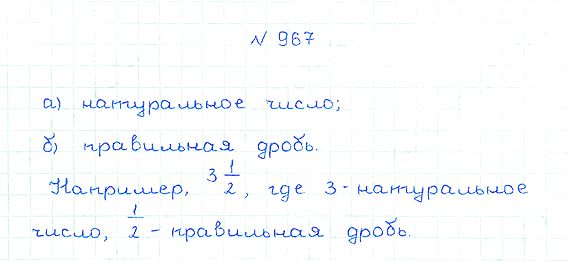 № 967
а) натуральное число;
б) правильная дробь.
Например, 3 1/2, где 3 - натуральное
число, 1/2 - правильная дробь.